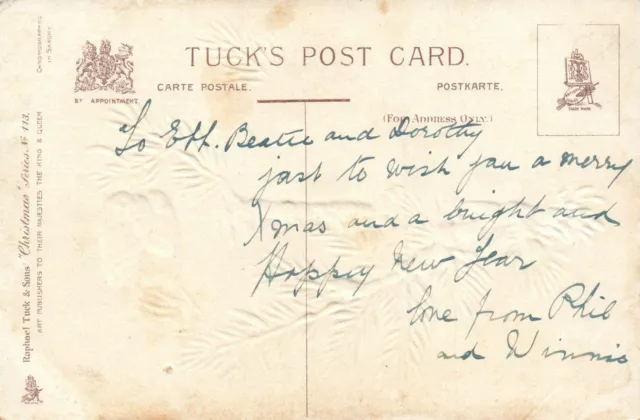 TUCK'S POST CARD.
CARTE POSTALE.
POSTKARTE.
BY APPOINTMENT.
(FOR ADDRESS ONLY.)
TRADE MARK
To Eth. Beatie and Dorothy
just to wish you a merry
Xmas and a bright and
Happy New Year
love from Phil
and Winnie
Raphael Tuck & Sons "Christmas" Series No 113.
ART PUBLISHERS TO THEIR MAJESTIES THE KING & QUEEN
CHROMOGRAPHED
IN SAXONY